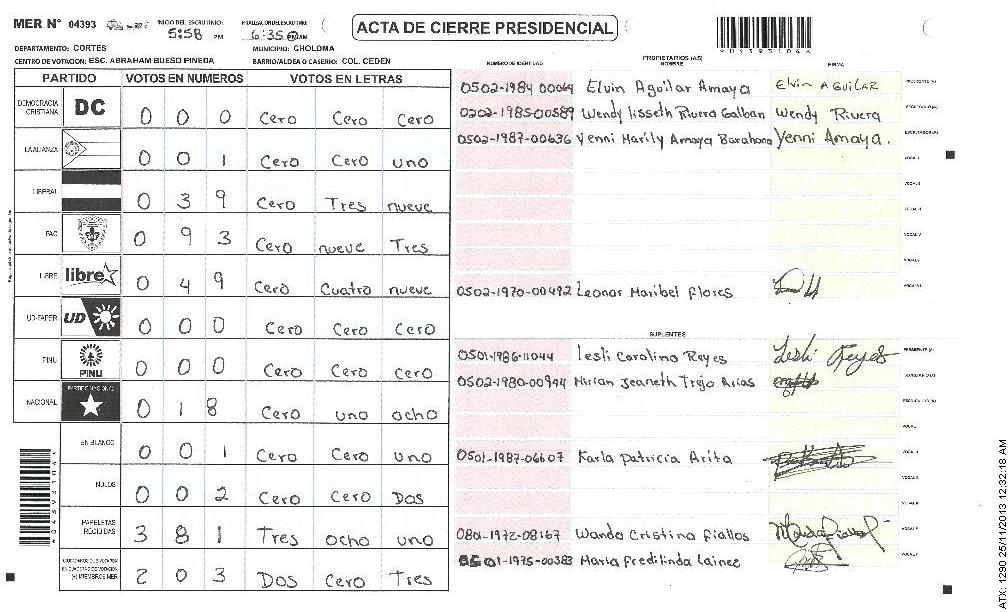 MER Nº 04393 INICIO DEL ESCRUTINIO: 5:58 PM FINALIZACION DEL ESCRUTINIO: 6:35 PM/AM
ACTA DE CIERRE PRESIDENCIAL
DEPARTAMENTO: CORTES MUNICIPIO: CHOLOMA
CENTRO DE VOTACION: ESC. ABRAHAM BUESO PINEDA BARRIO/ALDEA O CASERIO: COL. CEDEN
PARTIDO VOTOS EN NUMEROS VOTOS EN LETRAS
DEMOCRACIA CRISTIANA DC 0 0 0 Cero Cero Cero
LA ALIANZA 0 0 1 Cero Cero uno
LIBERAL 0 3 9 Cero Tres nueve
PAC 0 9 3 Cero nueve Tres
LIBRE libre 0 4 9 Cero Cuatro nueve
UD-FAPER UD 0 0 0 Cero Cero Cero
PINU PINU 0 0 0 Cero Cero Cero
NACIONAL PARTIDO NACIONAL 0 1 8 Cero uno ocho
EN BLANCO 0 0 1 Cero Cero uno
NULOS 0 0 2 Cero Cero Dos
PAPELETAS RECIBIDAS 3 8 1 Tres ocho uno
CIUDADANOS QUE VOTARON EN CUADERNO DE VOTACION (+) MIEMBROS MER 2 0 3 Dos Cero Tres
NUMERO DE IDENTIDAD PROPIETARIOS (AS) NOMBRE FIRMA
0502-1984 00064 Elvin Aguilar Amaya Elvin AGUILAR PRESIDENTE (A)
0202-1985-00589 Wendy lisseth Rivera Galban Wendy Rivera SECRETARIO (A)
0502-1987-00636 Yenni Marily Amaya Barahona Yenni Amaya. ESCRUTADOR (A)
VOCAL I
VOCAL II
VOCAL III
VOCAL IV
VOCAL V
0502-1970-00492 Leonor Maribel flores
SUPLENTES
0501-1986-11044 lesli Carolina Reyes Leshi Reyes PRESIDENTE (A)
0502-1980-00944 Mirian Jeaneth Trejo Arias SECRETARIO (A)
ESCRUTADOR (A)
VOCAL I
0501-1987-06607 Karla patricia Arita
0801-1972-08167 Wanda Cristina fiallos
0501-1975-00383 Maria fredilinda lainez
ATX: 1290 25/11/2013 12:32:18 AM